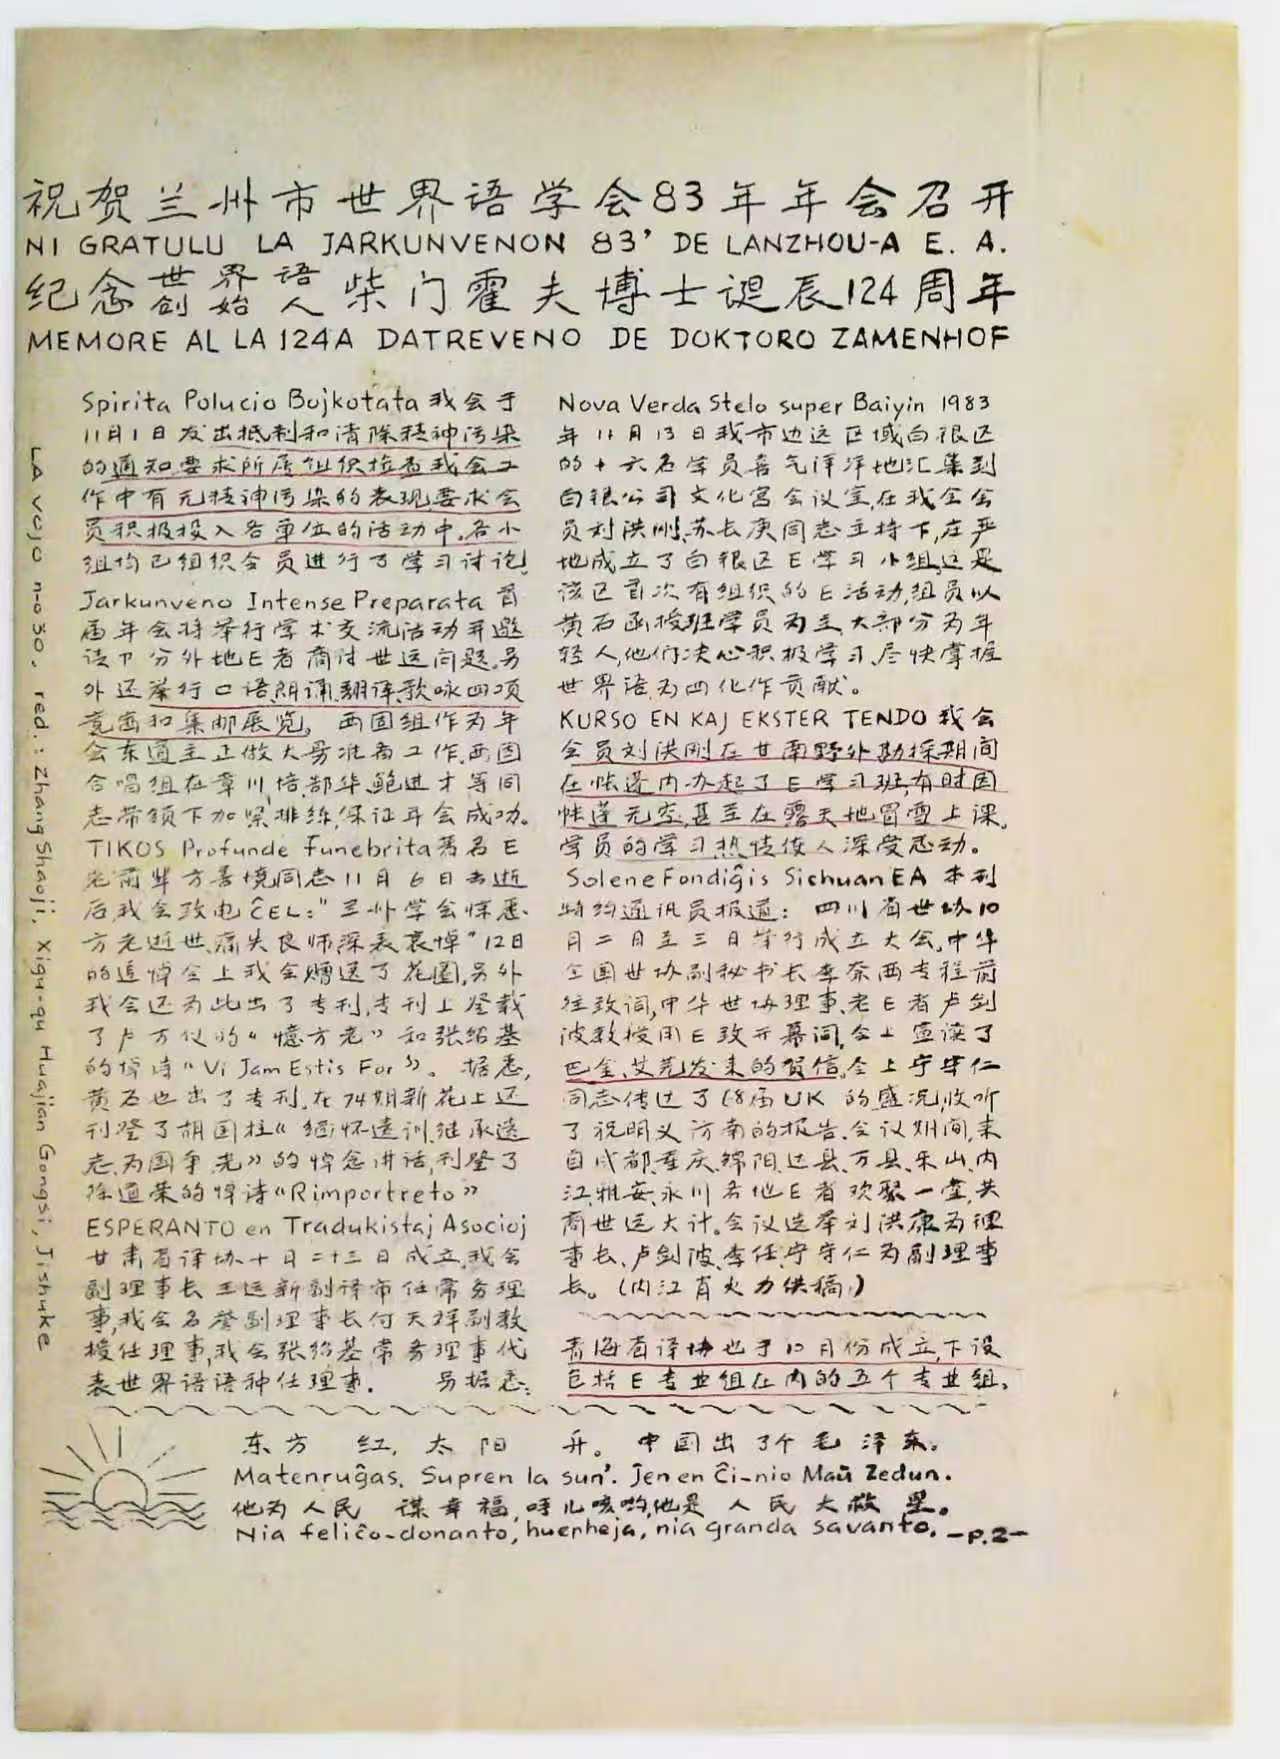 祝贺兰州市世界语学会83年年会召开
NI GRATULU LA JARKUNVENON 83' DE LANZHOU-A E. A.
纪念世界语创始人柴门霍夫博士诞辰124周年
MEMORE AL LA 124A DATREVENO DE DOKTORO ZAMENHOF
LA VOJO n-o 30, red.: Zhang Shaoji, Xigu-qu Huajian Gongsi, Jishuke
Spirita Polucio Bojkotata 我会于
11月1日发出抵制和清除精神污染
的通知,要求所属组织检查我会工
作中有无精神污染的表现,要求会
员积极投入各单位的活动中。各小
组均已组织会员进行了学习讨论!
Jarkunveno Intense Preparata 首
届年会将举行学术交流活动并邀
请部分外地E者商讨世运问题。另
外还举行口语、朗诵、翻译、歌咏四项
竞画和集邮展览。西固组作为年
会东道主正做大量准备工作。西固
合唱组在章川、培、郜华、鲍进才等同
志带领下加紧排练,保证年会成功。
TIKOS Profunde Funebrita 著名E
老前辈方善境同志11月6日去逝
后我会致电ĈEL:"兰州学会惊悉
方老逝世,痛失良师深表哀悼"12日
的追悼会上我会赠送了花圈,另外
我会还为此出了专刊,专刊上登载
了卢万仪的"憶方老"和张绍基
的悼诗"Vi Jam Estis For"。据悉,
黄石也出了专刊。在74期新花上还
刊登了胡国柱《缅怀遗训,继承遗
志,为国争光》的悼念讲话,刊登了
徐道荣的悼诗"Rimportreto"
ESPERANTO en Tradukistaj Asocioj
甘肃省译协十月二十三日成立,我会
副理事长王运新副译审任常务理
事,我会名誉副理事长付天祥副教
授任理事,我会张绍基常务理事代
表世界语语种任理事. 另据悉:
Nova Verda Stelo super Baiyin 1983
年11月13日我市边远区域白银区
的十六名学员喜气洋洋地汇集到
白银公司文化宫会议室,在我会会
员刘洪刚、苏长庚同志主持下,庄严
地成立了白银区E学习小组,这是
该区首次有组织的E活动,组员以
黄石函授班学员为主,大部分为年
轻人,他们决心积极学习,尽快掌握
世界语,为四化作贡献。
KURSO EN KAJ EKSTER TENDO 我会
会员刘洪刚在甘南野外勘探期间
在帐蓬内办起了E学习班,有时因
帐蓬无空,甚至在露天地冒雪上课。
学员的学习热情使人深受感动。
Solene Fondiĝis Sichuan EA 本刊
特约通讯员报道: 四川省世协10
月二日至三日举行成立大会,中华
全国世协副秘书长李奈西专程前
往致词,中华世协理事、老E者卢剑
波教授用E致开幕词,会上宣读了
巴金、艾芜发来的贺信。会上宁守仁
同志传达了68届UK 的盛况,收听
了祝明义济南的报告。会议期间,来
自成都、重庆、绵阳、达县、万县、乐山、内
江、雅安、永川各地E者欢聚一堂,共
商世运大计。会议选举刘洪康为理
事长、卢剑波、李任、宁守仁为副理事
长。(内江肖火力供稿,)
青海省译协也于10月份成立,下设
包括E专业组在内的五个专业组、
东方 红, 太阳 升。 中国出了个毛泽东。
Matenruĝas. Supren la sun'. Jen en Ĉi-nio Maŭ Zedun.
他为人民 谋幸福,呼儿咳哟,他是 人民 大救星。
Nia feliĉo-donanto, huerheja, nia granda savanto. -p.2-